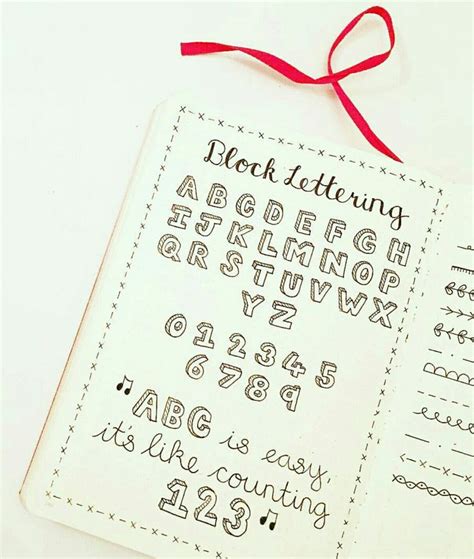 Block Lettering
ABCDEFGH
IJKLMNOP
QRSTUVWX
YZ
012345
6789
♫ "ABC is easy,
it's like counting
123" ♫